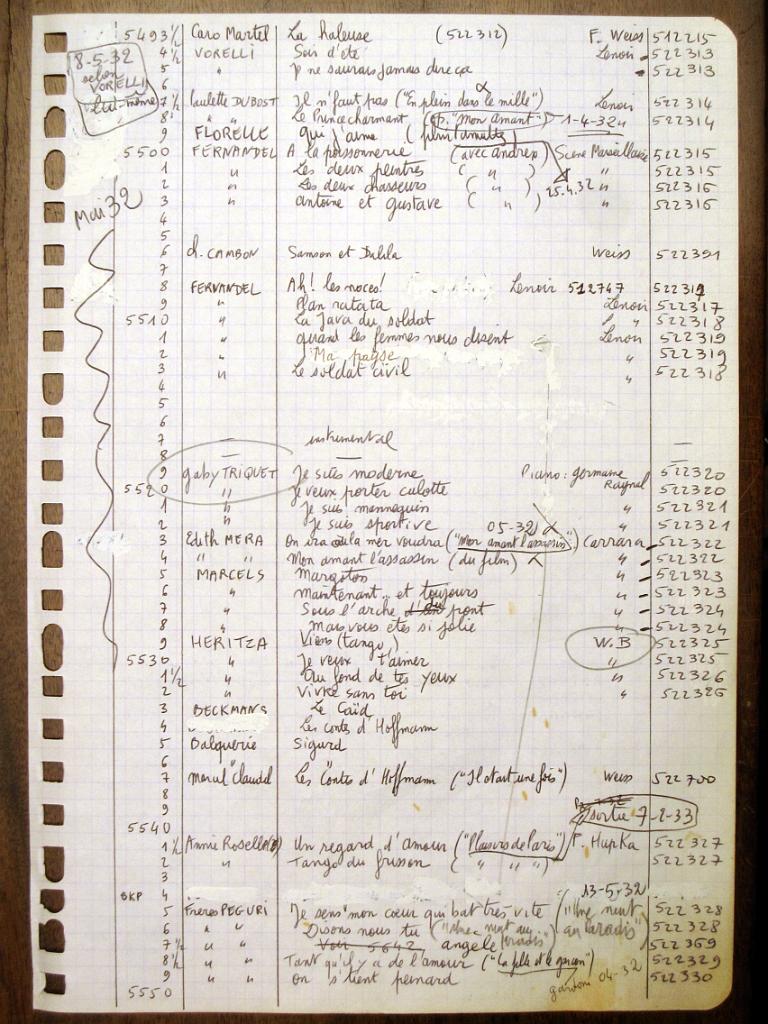 5493½ Caro Martel La haleuse (522312) F. Weiss 512215
8-5-32 selon VORELLI lui-même
4½ VORELLI Soir d'été Lenoir 522313
5 " Je ne saurais jamais dire ça - 522313
6
7½ Paulette DUBOST Il n'faut pas ("En plein dans le mille") Lenoir 522314
8½ " " Le Prince charmant (op. "Mon amant") 1-4-32 522314
9 FLORELLE qui j'aime
5500 FERNANDEL A la poissonnerie (avec andrex) Scène Marseillaise 522315
1 " Les deux peintres ( " ) " 522315
2 " Les deux chasseurs ( " ) 25.4.32 " 522316
3 " antoine et gustave ( " ) " 522316
Mai 32
4
5
6 d. CAMBON Samson et Dalila Weiss 522391
7
8 FERNANDEL Ah! les noces! Lenoir 512747 522312
9 " Plan ratata Lenoir 522317
5510 " La Java du soldat " 522318
1 " quand les femmes nous disent Lenoir 522319
2 " Ma payse " 522319
3 " Le soldat civil " 522318
4
5
6
7 — instrumental —
8 — —
9 gaby TRIQUET Je suis moderne Piano: germaine Raynal 522320
5520 " Je veux porter culotte 522320
1 " Je suis mannequin " 522321
2 " Je suis sportive 05-32 " 522321
3 Edith MERA on ira où la mer voudra ("Mon amant l'assassin") Carrara 522322
4 " " Mon amant l'assassin (du film) " 522322
5 MARCELS Margoton " 522323
6 " maintenant... et toujours " 522323
7 " Sous l'arche d'un pont " 522324
8 " Mais vous êtes si jolie " 522324
9 HERITZA Viens (tango) W.B 522325
5530 " Je veux t'aimer " 522325
1½ " Au fond de tes yeux " 522326
2 " Vivre sans toi " 522326
3 BECKMANS Le Caïd
4 Les contes d'Hoffmann
5 Dalquerie Sigurd
6
7 Marcel Claudel Les Contes d'Hoffmann ("Il était une fois") Weiss 522700
8
9 sortie 7-2-33
5540
1½ Annie Rosello Un regard d'amour ("Plaisirs de Paris") P. Hupka 522327
2 " Tango du frisson " " " 522327
3
BKP 4 13-5-32
5 Frères PEGURI Je sens mon coeur qui bat très vite ("Une nuit au Paradis") 522328
6 " " Disons nous tu ("Une nuit au Paradis") 522328
7½ " " Voir 5642 angele 522369
8½ " " Tant qu'il y a de l'amour ("La fille et le garçon") 522329
9 " " on s'tient peinard 04-32 522330
5550